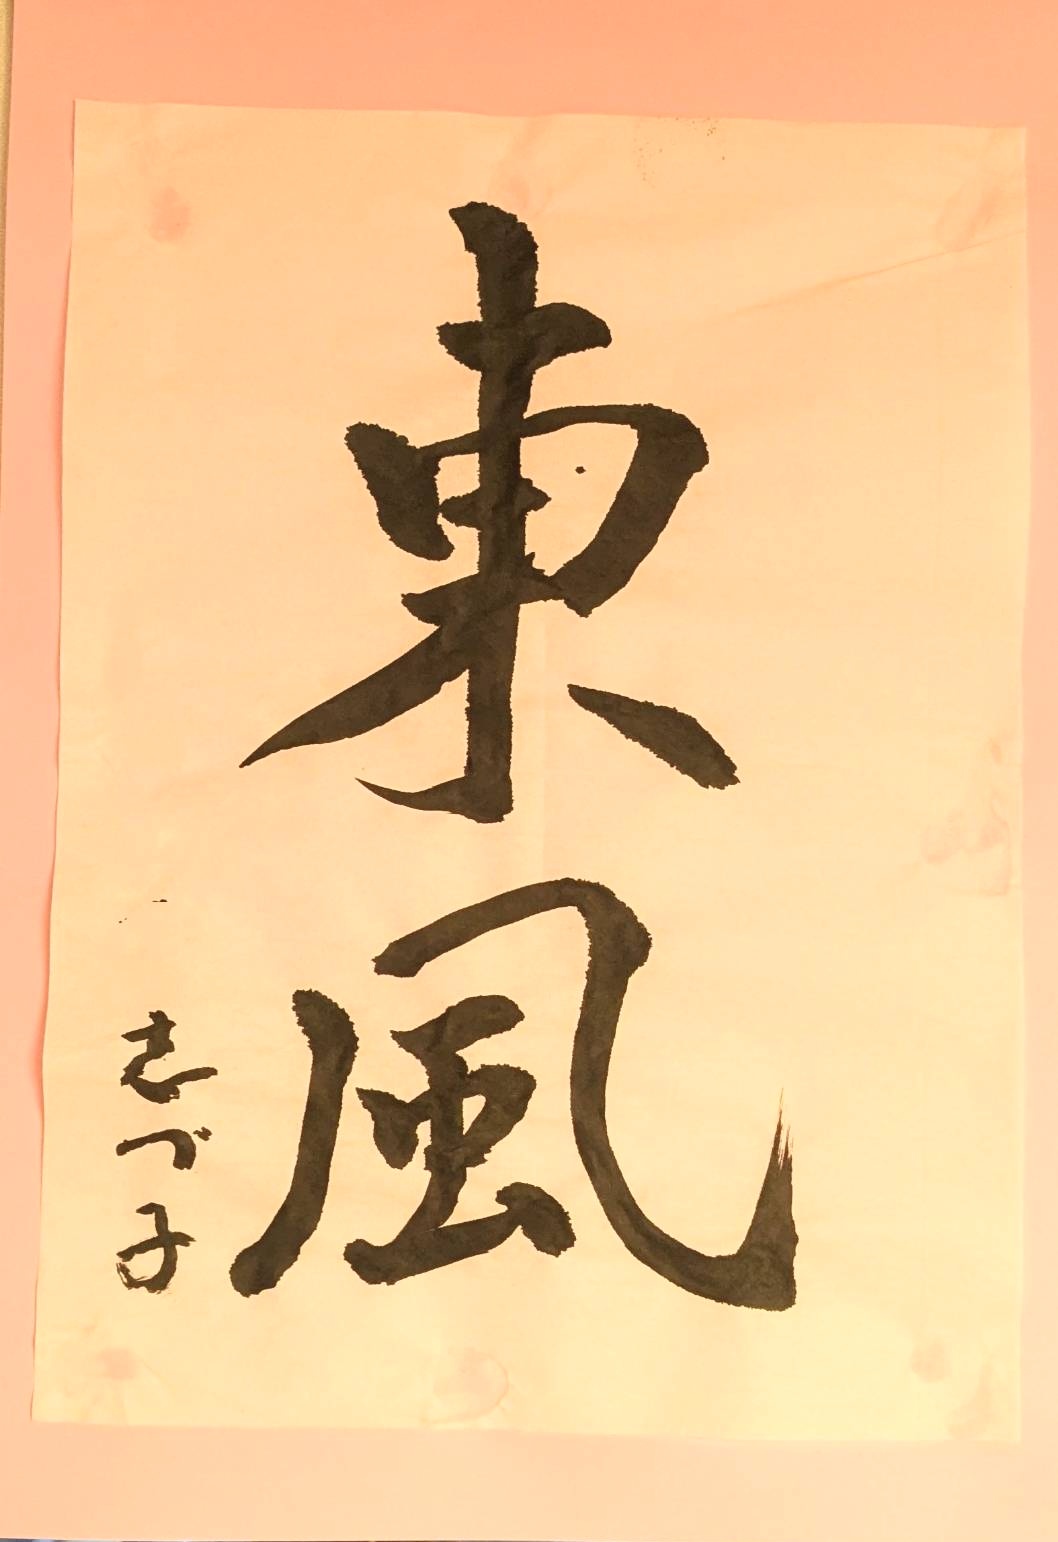 東風
志づ子